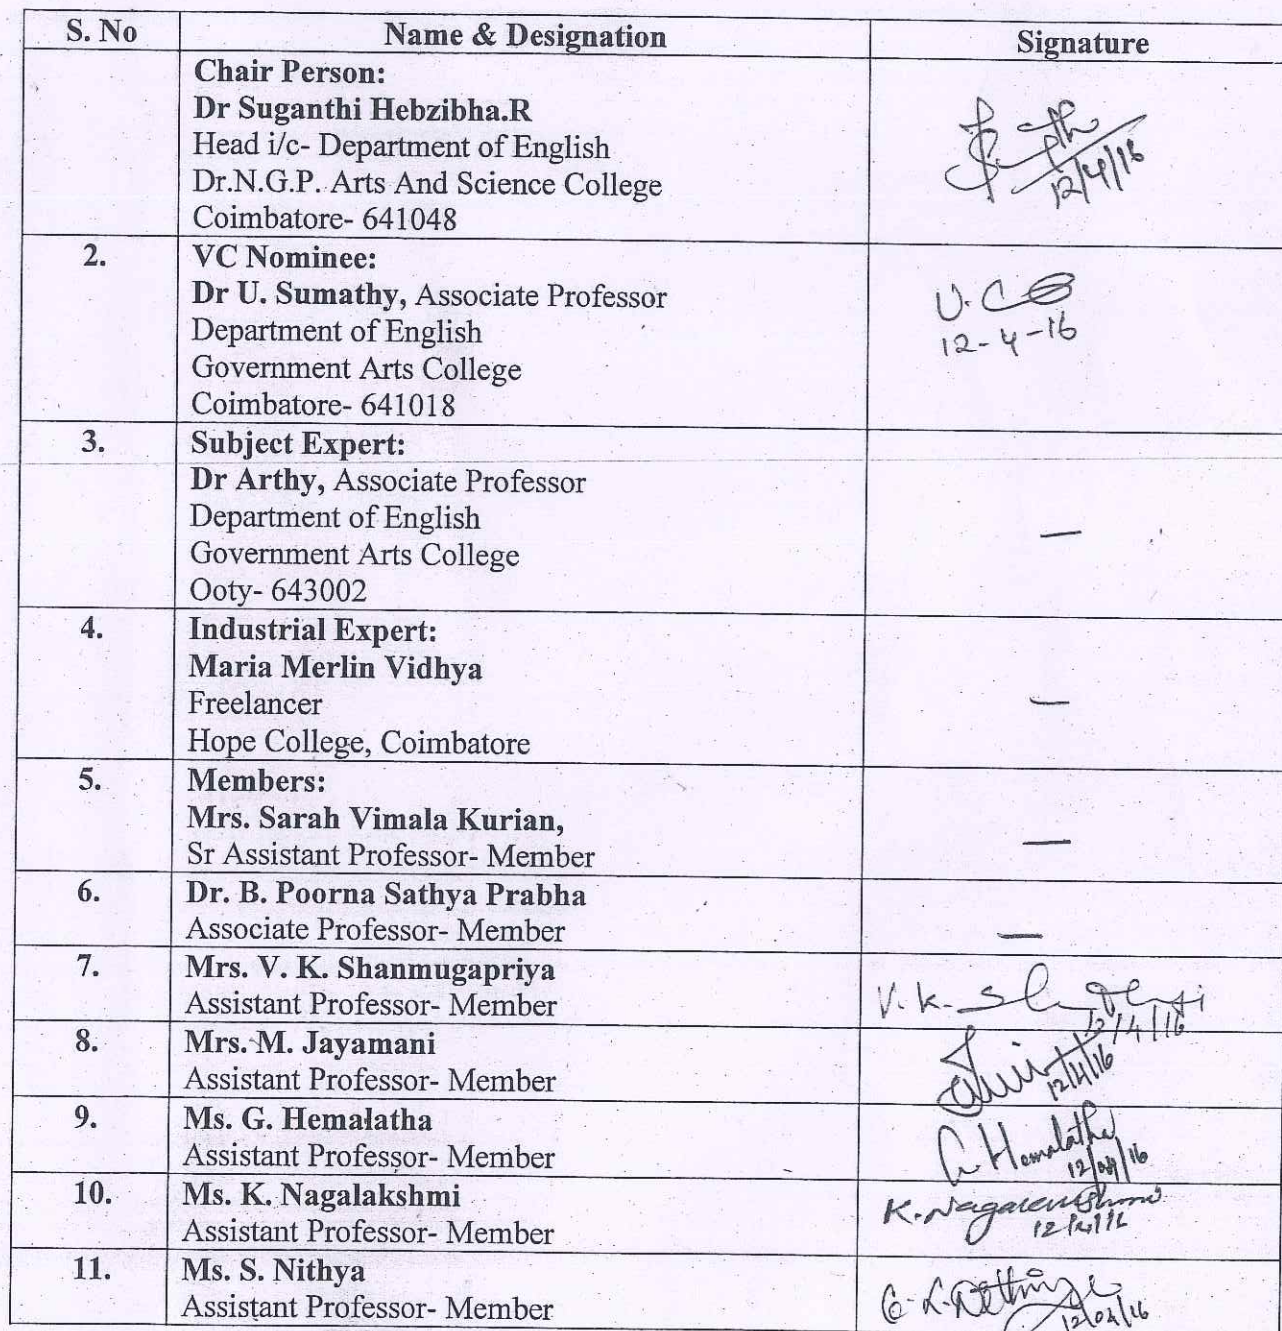 S. No Name & Designation Signature
Chair Person:
Dr Suganthi Hebzibha.R
Head i/c- Department of English
Dr.N.G.P. Arts And Science College
Coimbatore- 641048
12/4/16
2. VC Nominee:
Dr U. Sumathy, Associate Professor
Department of English
Government Arts College
Coimbatore- 641018
U.
12-4-16
3. Subject Expert:
Dr Arthy, Associate Professor
Department of English
Government Arts College
Ooty- 643002
—
4. Industrial Expert:
Maria Merlin Vidhya
Freelancer
Hope College, Coimbatore
—
5. Members:
Mrs. Sarah Vimala Kurian,
Sr Assistant Professor- Member
—
6. Dr. B. Poorna Sathya Prabha
Associate Professor- Member
—
7. Mrs. V. K. Shanmugapriya
Assistant Professor- Member
V. K.
12/4/16
8. Mrs. M. Jayamani
Assistant Professor- Member
12/4/16
9. Ms. G. Hemalatha
Assistant Professor- Member
G Hemalatha
12/04/16
10. Ms. K. Nagalakshmi
Assistant Professor- Member
K.
11. Ms. S. Nithya
Assistant Professor- Member
12/04/16